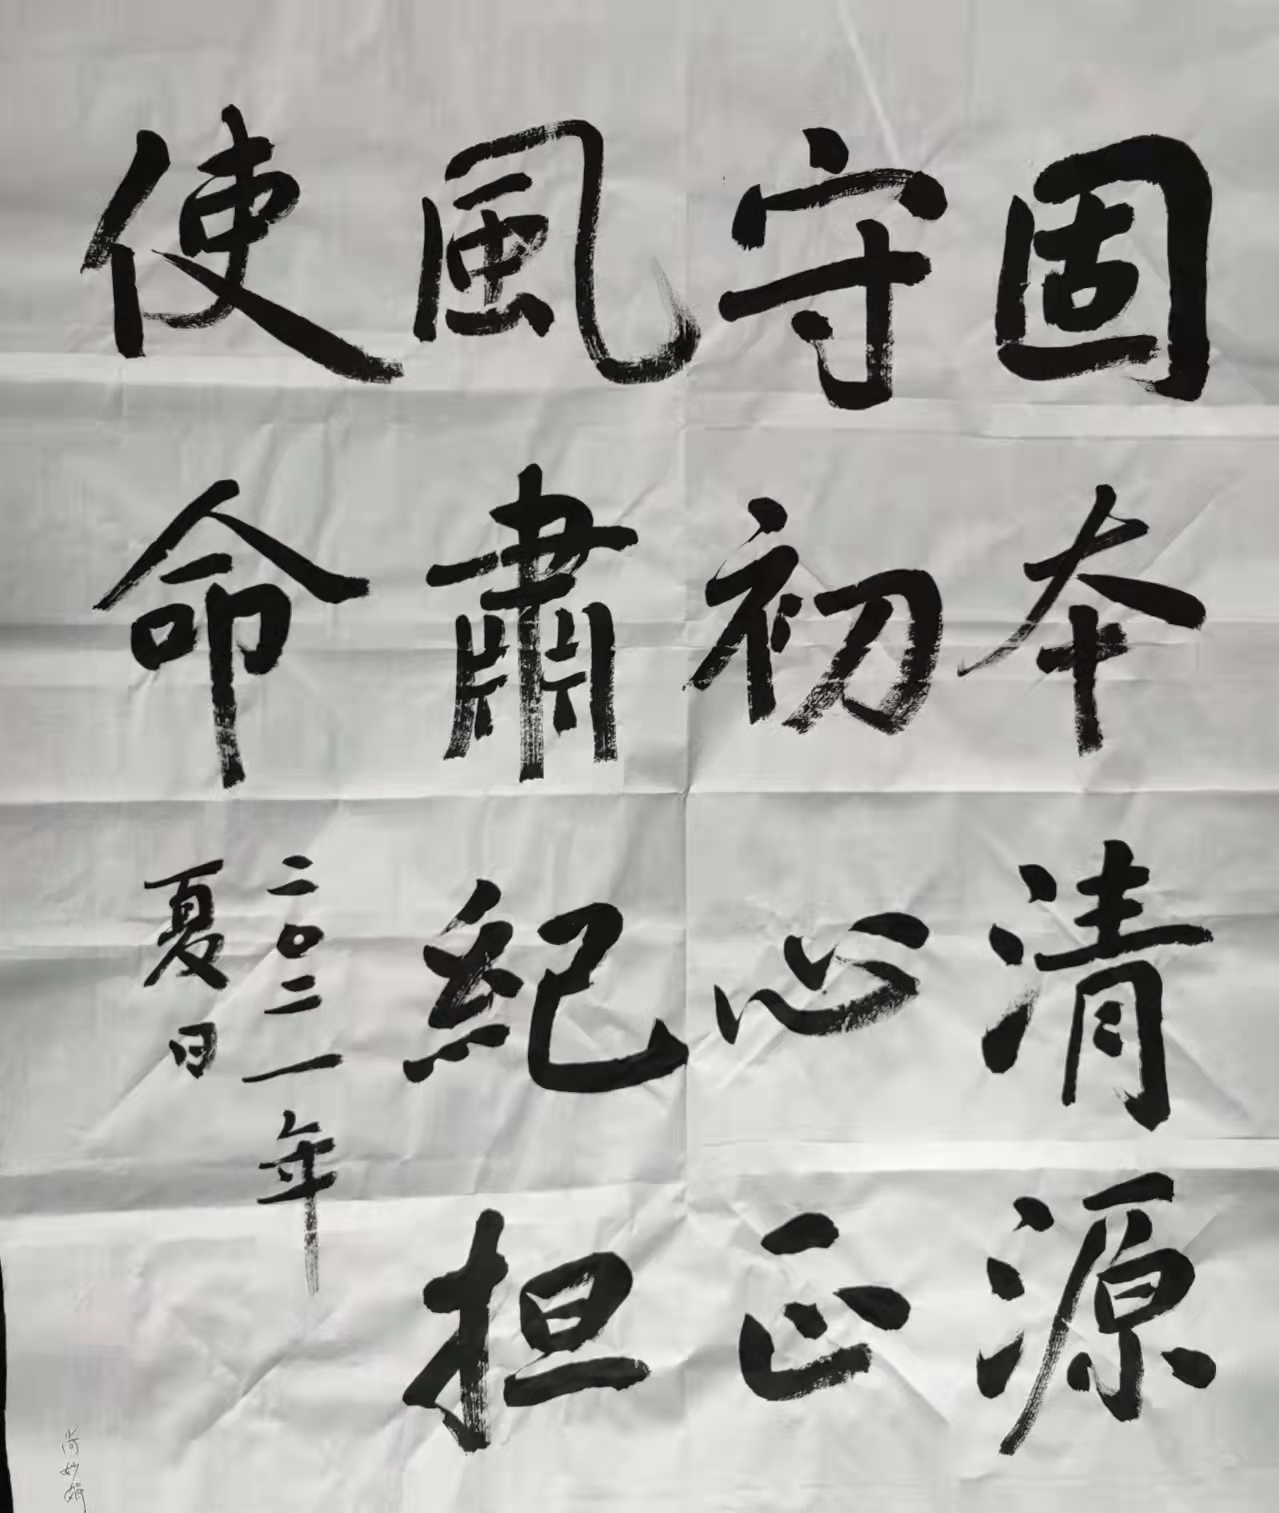 固本清源
守初心正
風肅紀担
使命
二〇二一年
夏日